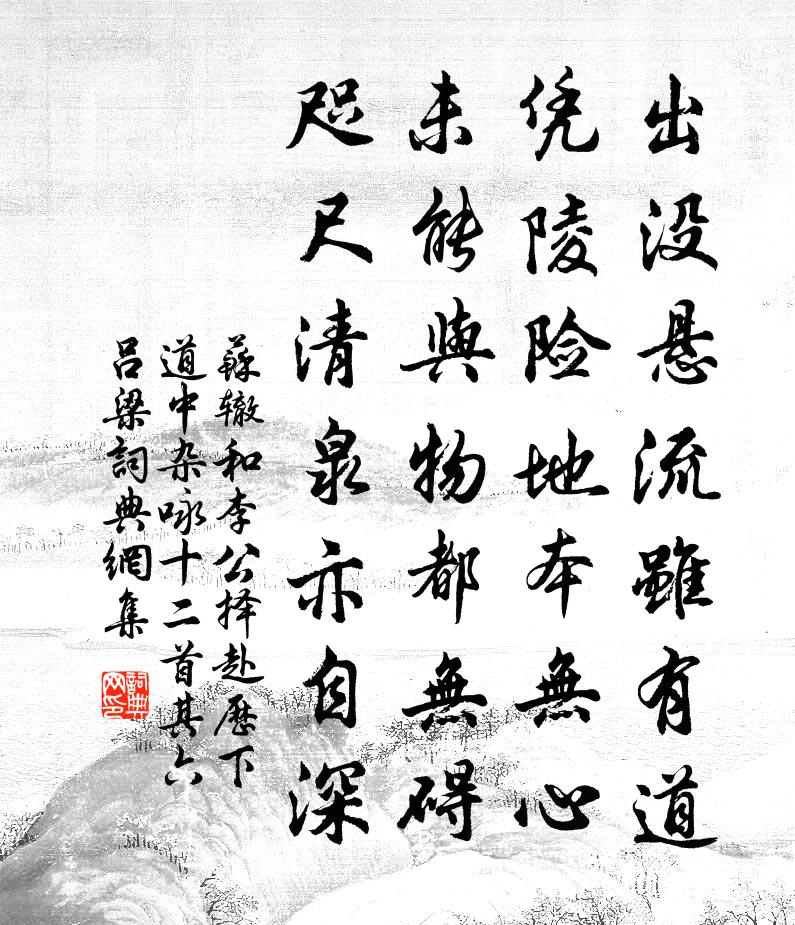 出没悬流雖有道
凭陵险地本無心
未能與物都無碍
咫尺清泉亦自深
蘇辙和李公择赴歷下
道中杂咏十二首其六
吕梁詞典網集
詞典网印